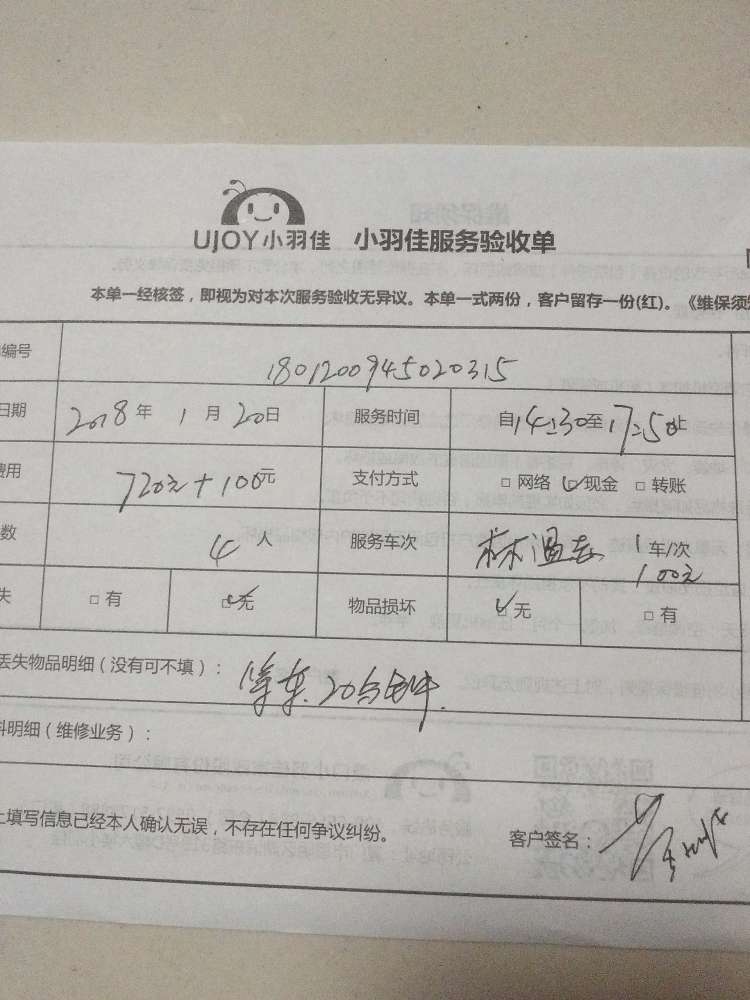 UJOY小羽佳 小羽佳服务验收单
本单一经核签，即视为对本次服务验收无异议。本单一式两份，客户留存一份(红)。《维保须知
编号 1801200945020315
日期 2018年1月20日 服务时间 自14:30至17:50止
费用 720元+100元 支付方式 □ 网络 ☑现金 □ 转账
数 4人 服务车次 林温志 1车/次
100元
失 □ 有 ☑无 物品损坏 ☑无 □ 有
丢失物品明细（没有可不填）： 等车20分钟.
料明细（维修业务）：
上填写信息已经本人确认无误，不存在任何争议纠纷。 客户签名：